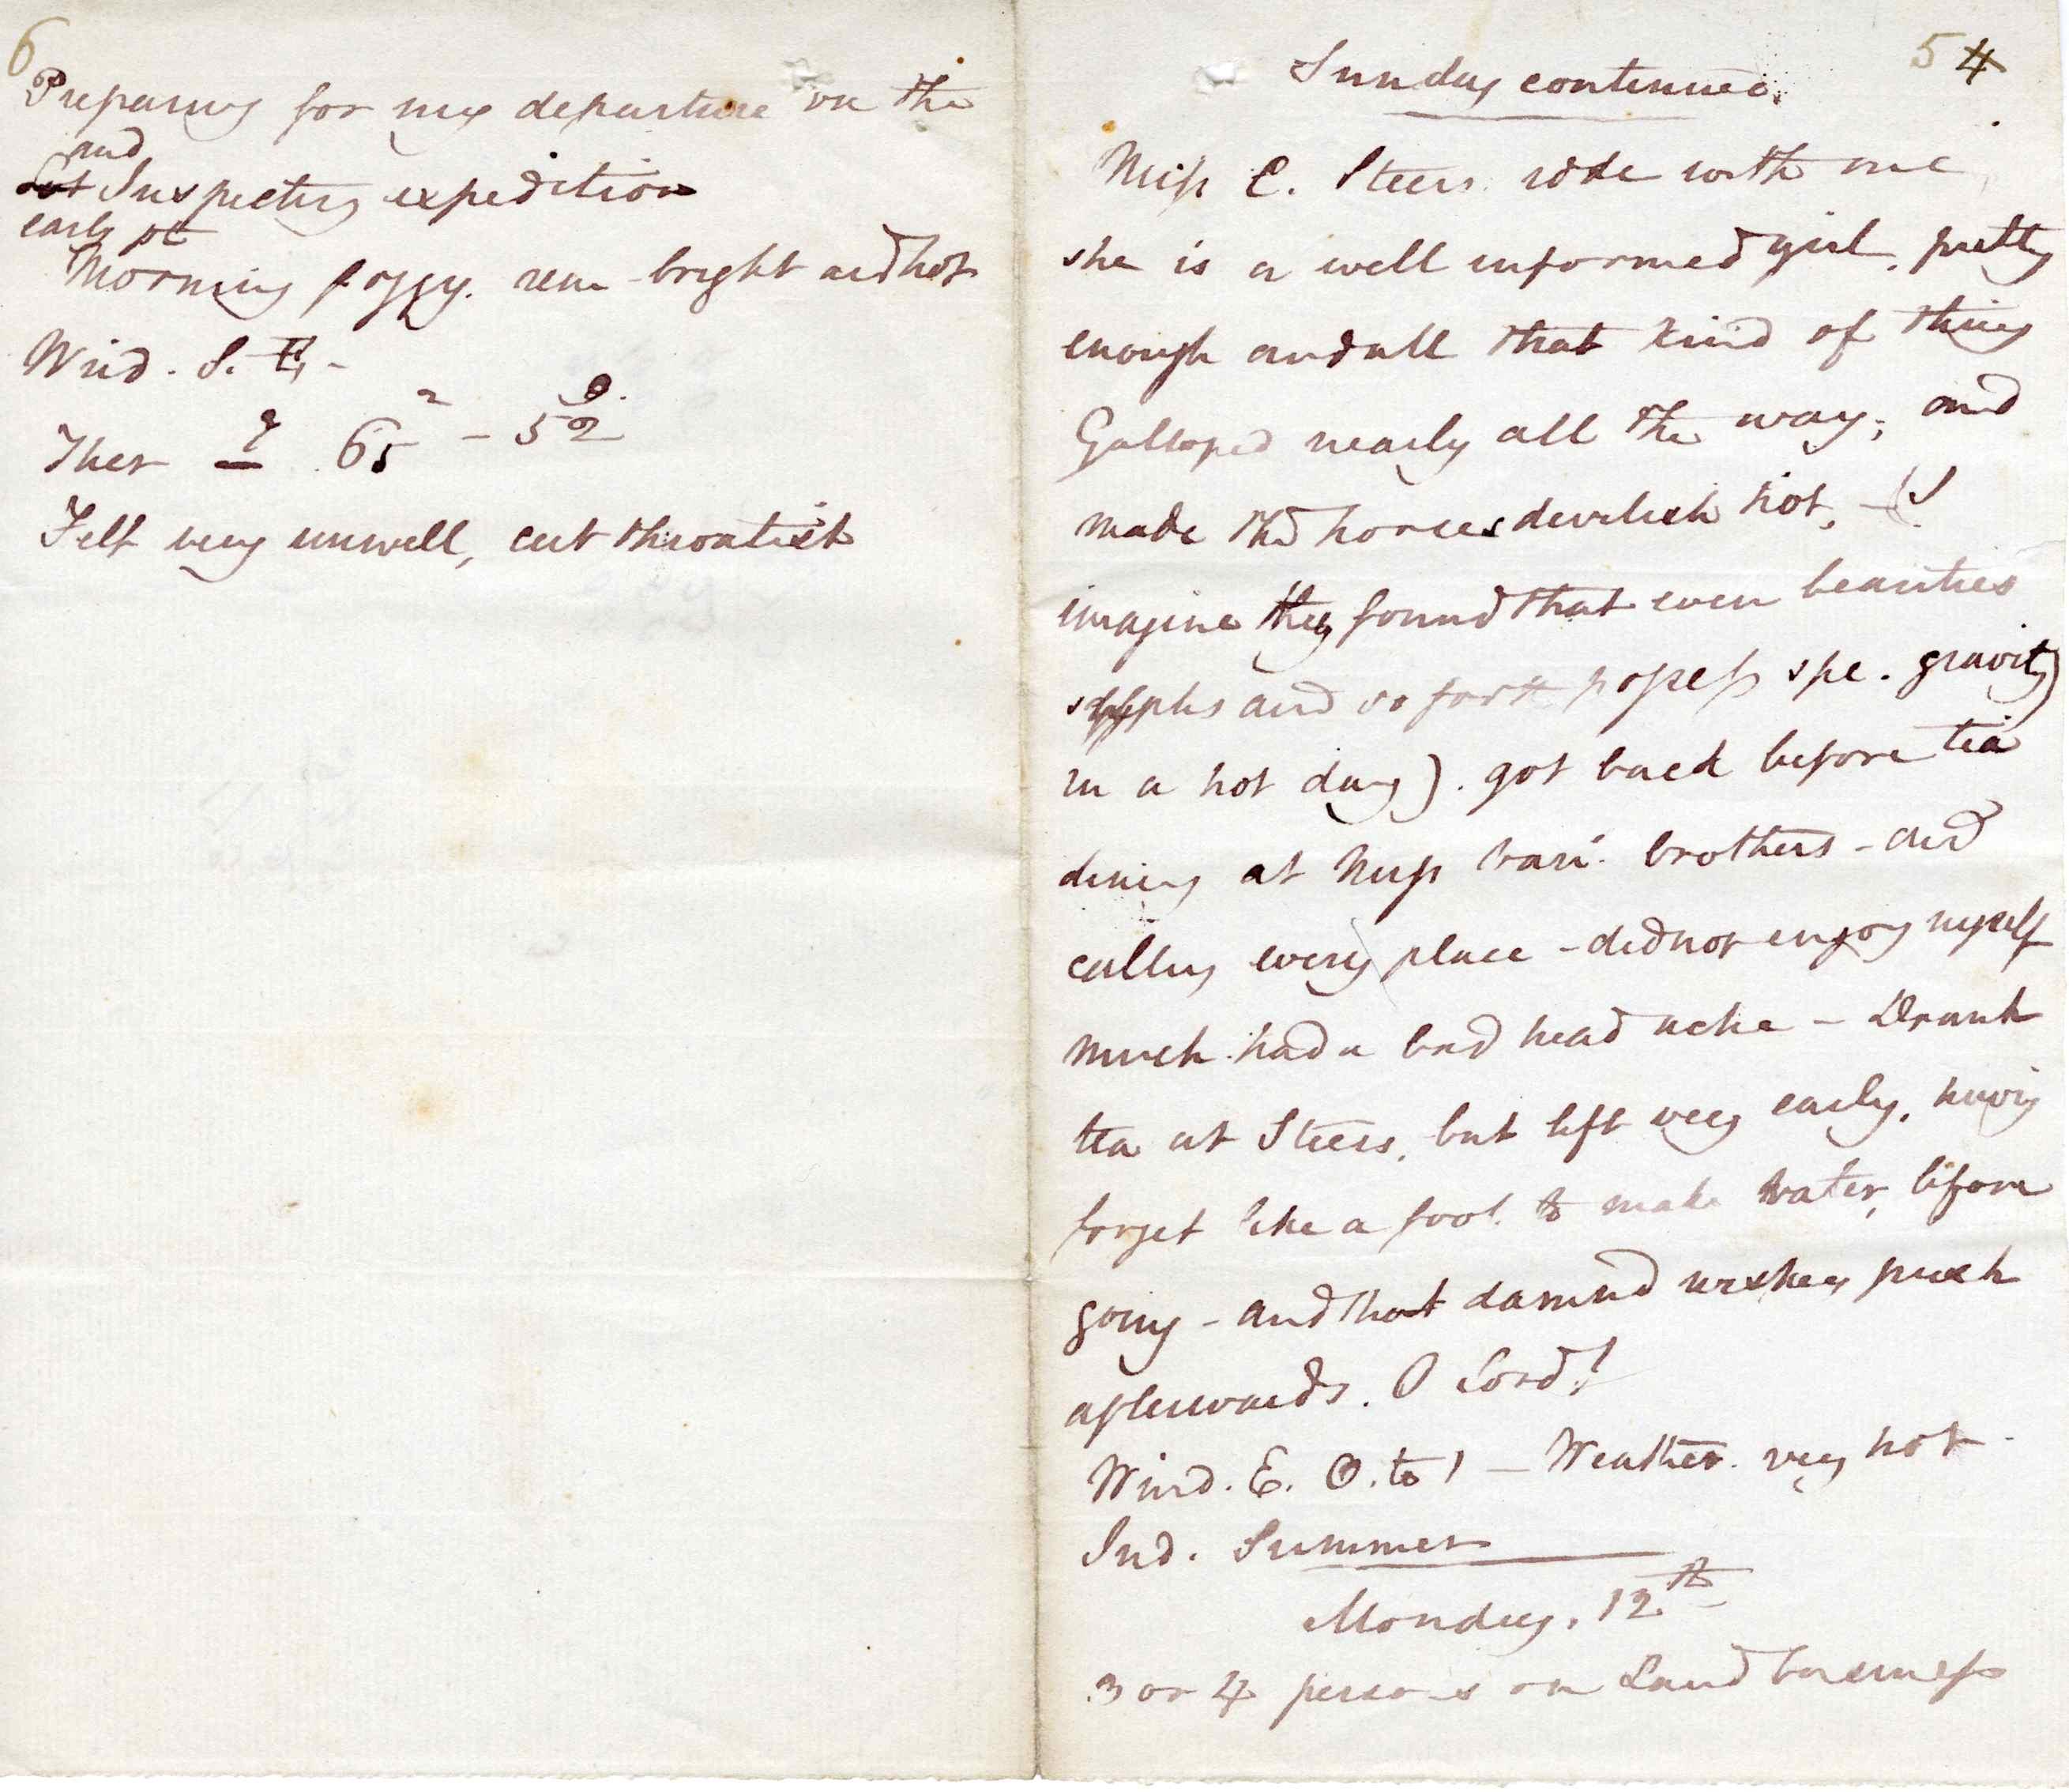 5 4
Sunday continued.
Miss C. Steers rode with me,
she is a well informed girl, pretty
enough and all that kind of thing
Galloped nearly all the way; and
made the horses devilish hot, - (I
imagine they found that even beauties
sylphs and so forth possess spe. gravity
in a hot day). got back before tea
dining at Miss brothers - and
calling every place - did not enjoy myself
much had a bad head ache - Drank
tea at Steers, but left very early, having
forget like a fool to make water, before
going - and that damnd whiskey punch
afterwards. O Lord!
Wind. E. 0. to 1 - Weather very hot -
Ind. Summer
Monday, 12th
3 or 4 persons on Land business
6
Preparing for my departure on the
and
Inspecting expedition
early pt
Morning foggy. rem bright and hot
Wind. S. E, -
Ther 65 - 52
Felt very unwell, cut throatish